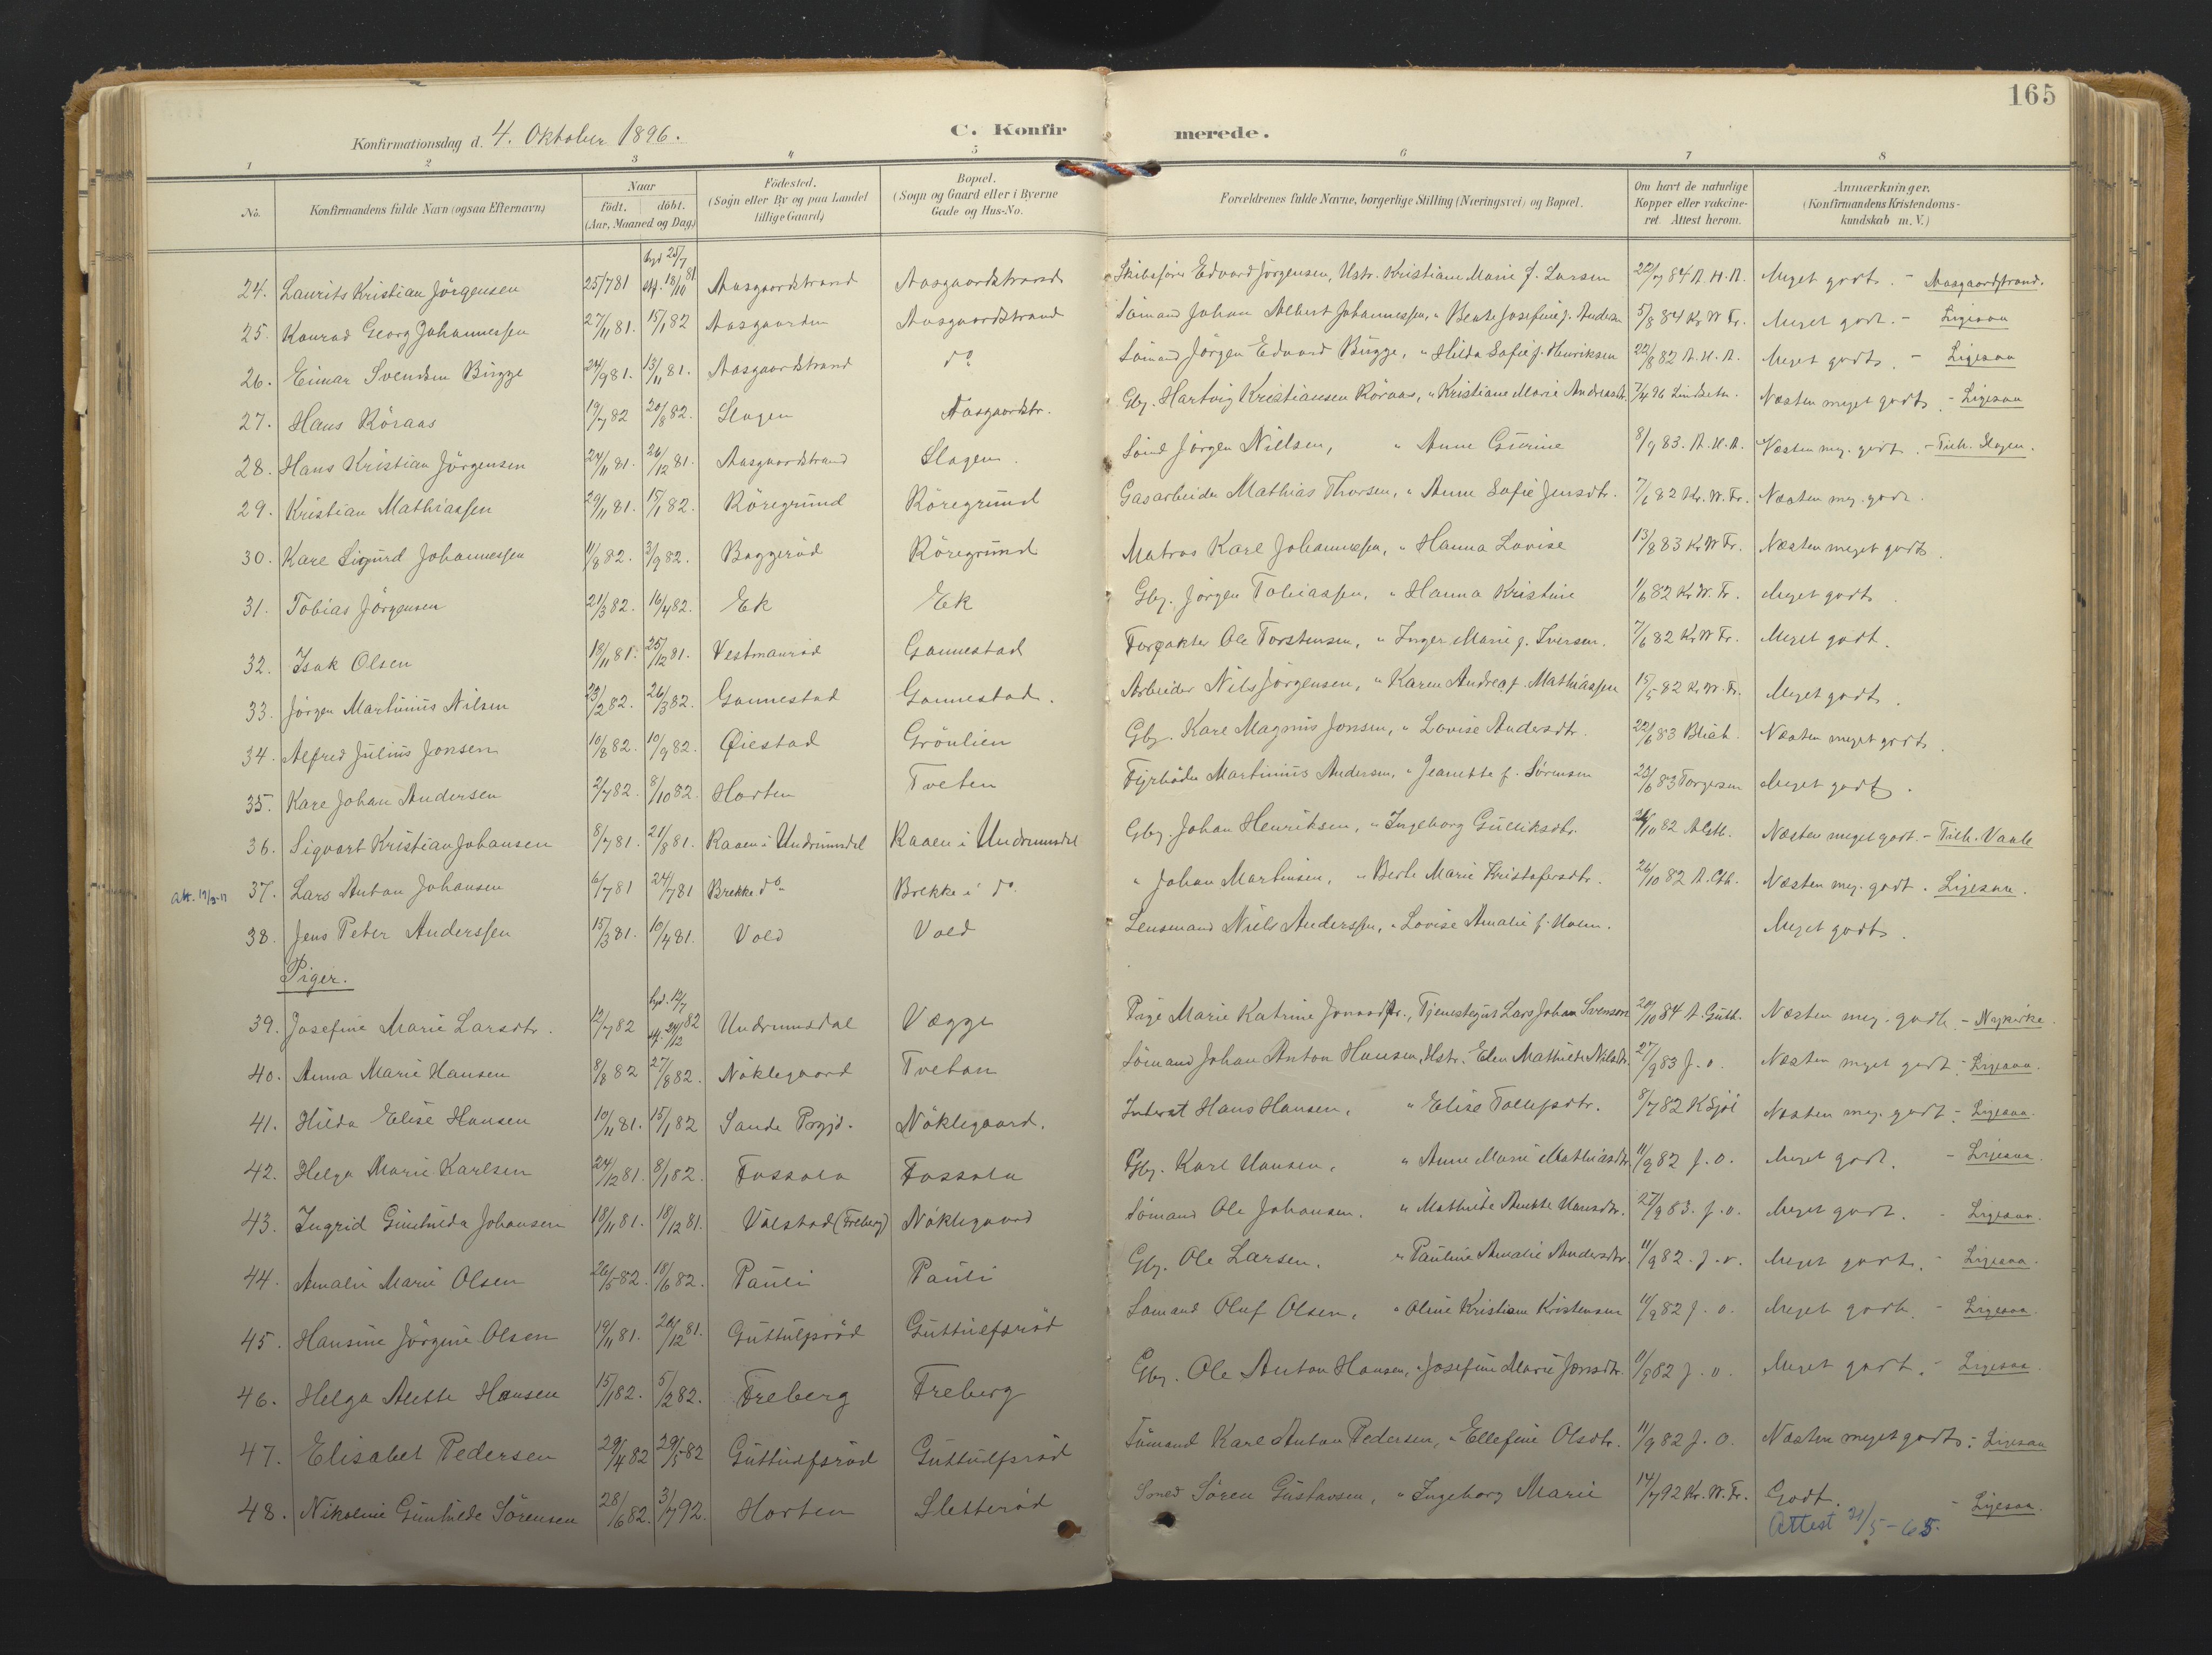 165
Konfirmationsdag d. 4. Oktober 1896.
C. Konfirmerede.
1 2 3 4 5 6 7 8
No. Konfirmandens fulde Navn (ogsaa Efternavn) Naar født. døbt. (Aar, Maaned og Dag) Fødested. (Sogn eller By og paa Landet tillige Gaard) Bopæl. (Sogn og Gaard eller i Byerne Gade og Hus-No. Forældrenes fulde Navne, borgerlige Stilling (Næringsvei) og Bopæl. Om havt de naturlige Kopper eller vakcineret. Attest herom. Anmærkninger. (Konfirmandens Kristendomskundskab m. V.)
24. Laurits Kristian Jörgensen 25/7 81 hjd 25/7 stf. 18/10 81 Aasgaardstrand Aasgaardstrand Skibsfører Edvard Jörgensen, Hstr. Kristiane Marie f. Larsen 22/7 84 A. H. A. Meget godt. - Aasgaardstrand.
25. Konrad Georg Johannessen 27/11 81. 15/1 82 Aasgaarden Aasgaardstrand Sömand Johan Albert Johannessen, " Beate Josefine f. Anders. 5/8 84 Kr. W. Fr. Meget godt. - Ligesaa
26. Einar Svendsen Bugge 24/9 81. 13/11 81. Aasgaardstrand do Sömand Jörgen Edvard Bugge, " Hilda Sofie f. Henriksen 22/8 82 A. H. A. Meget godt. - Ligesaa
27. Hans Röraas 19/7 82 20/8 82. Slagen Aasgaardstr. Gbr. Hartvig Kristiansen Röraas, " Kristiane Marie Andreasdtr. 7/4 96 Lindseth. Næsten meget godt - Ligesaa
28. Hans Kristian Jörgensen 24/11 81. 26/12 81. Aasgaardstrand Slagen. Sömd Jörgen Nielsen, " Anne Gurine 8/9 83. A. H. A. Næsten meg. godt. - Tilh. Slagen.
29. Kristian Mathiassen 29/11 81. 15/1 82. Röregrund Röregrund Gasarbeider Mathias Thorsen, " Anne Sofie Jensdtr. 7/6 82 Kr. W. Fr. Næsten meg. godt.
30. Karl Sigurd Johannessen 11/8 82. 3/9 82. Baggeröd Röregrund Matros Karl Johannessen, " Hanna Lovise 13/8 83 Kr. W Fr. Næsten meget godt.
31. Tobias Jörgensen 21/3 82. 16/4 82. Ek Ek Gbr. Jörgen Tobiassen, " Hanna Kristine 1/6 82 Kr. W. Fr. Meget godt.
32. Isak Olsen 18/11 81. 25/12 81. Vestmanröd Gannestad Forpakter Ole Torstensen, " Inger Marie f. Iversen. 7/6 82 Kr. W Fr. Meget godt.
33. Jörgen Martinius Nilsen 23/2 82. 26/3 82. Gannestad Gannestad. Arbeider Nils Jörgensen, " Karen Andrea f. Mathiassen 15/5 82 Kr. W. Fr. Meget godt.
34. Alfred Julius Jonsen 10/8 82. 10/9 82. Øiestad Grönlien Gbr. Karl Magnus Jonsen, " Lovise Andersdtr. 22/6 83 Blich. Næsten meget godt.
35. Karl Johan Andersen 2/7 82. 8/10 82. Horten Tveten Fyrböder Martinius Andersen, " Jeanette f. Sörensen 23/6 83 Torgersen Meget godt.
36. Sigvart Kristian Johansen 8/7 81. 21/8 81. Raaen i Undrumsdal Raaen i Undrumsdal Gbr. Johan Henriksen, " Ingeborg Gulliksdtr. 26/10 82 A. Gth. Næsten meget godt. - Tilh. Vaale
Att. 19/3-17 37. Lars Anton Johansen 6/7 81 24/7 81 Brekke do Brekke i do. " Johan Martinsen, " Berte Marie Kristofersdtr. 26/10 82 A. Gth. Næsten meg. godt. Ligesaa.
38. Jens Peter Anderssen 15/3 81. 10/4 81. Vold Vold Lensmand Niels Anderssen, " Lovise Amalie f. Holm. Meget godt.
Piger.
39. Josefine Marie Larsdtr. 12/7 82 hjd. 12/7 stf. 24/12 82 Undrumsdal Vægge Pige Marie Katrine Jonasdtr., Tjenestegut Lars Johan Svensen 20/10 84 A. Guth. Næsten meg. godt. - Nykirke.
40. Anna Marie Hansen 8/8 82 27/8 82. Nöklegaard Tvetan Sömand Johan Anton Hansen, Hstr. Elen Mathilde Nilsdtr. 27/9 83 J. O. Næsten meget godt - Ligesaa.
41. Hilda Elise Hansen 10/11 81. 15/1 82 Sande Prgjd. Nöklegaard. Inderst Hans Hansen, " Elise Tollefsdtr. 8/7 82 K Sjöl Næsten meg. godt - Ligesaa.
42. Helga Marie Karlsen 24/12 81. 8/1 82. Fossaln Fossaln Gbr. Karl Hansen, " Anne Marie Mathiasdtr. 11/9 82 J. O. Meget godt. - Ligesaa.
43. Ingrid Gunhilda Johansen 18/11 81. 18/12 81. Valstad (Freberg) Nöklegaard Sömand Ole Johansen. " Mathilde Anette Hansdtr. 27/9 83. J. O. Meget godt. - Ligesaa.
44. Amalie Marie Olsen 26/5 82. 18/6 82. Pauli Pauli Gbr. Ole Larsen. " Pauline Amalie Andersdtr. 11/9 82. J. O. Meget godt. - Ligesaa.
45. Hansine Jörgine Olsen 19/11 81. 26/12 81. Guttulfsröd Guttulfsröd Sömand Oluf Olsen, " Oline Kristiane Kristensen 11/9 82 J. O. Meget godt. - Ligesaa.
46. Helga Anette Hansen 15/1 82. 5/2 82. Freberg Freberg Gbr. Ole Anton Hansen, " Josefine Marie Jonsdtr. 11/9 82 J. O. Meget godt. - Ligesaa.
47. Elisabet Pedersen 29/4 82 29/5 82 Guttulfsröd Guttulfsröd Sömand Karl Anton Pedersen, " Ellefine Olsdtr. 11/9 82 J. O. Næsten meget godt. - Ligesaa
48. Nikoline Gunhilde Sörensen 28/6 82. 3/7 92. Horten Sletteröd Smed Sören Gustavsen, " Ingeborg Marie 14/7 92 Kr. W. Fr. Godt. - Ligesaa.
Attest 21/5-65.